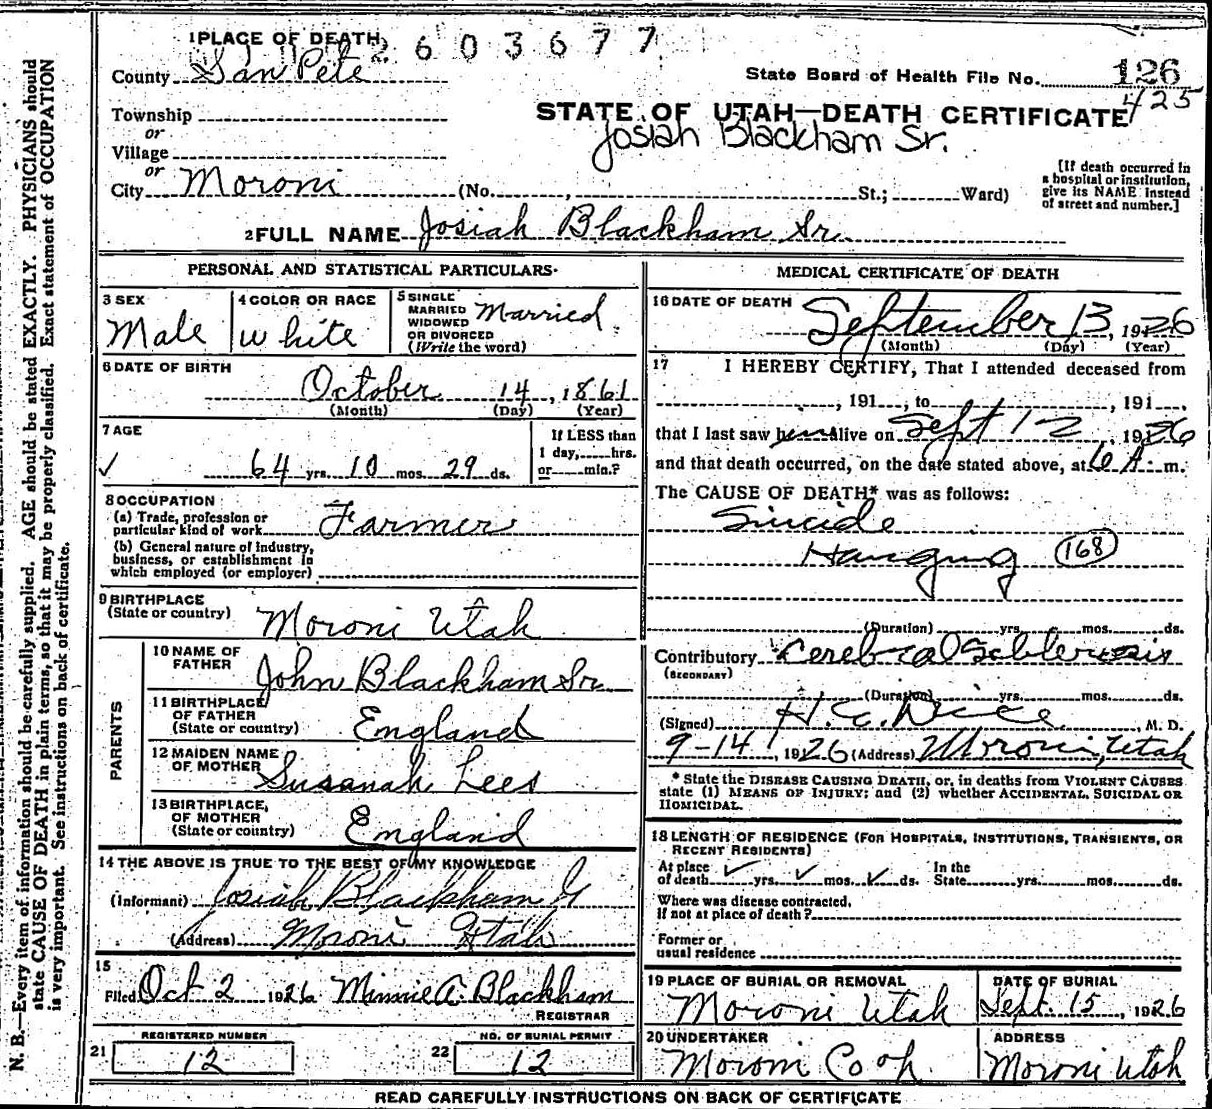 1 PLACE OF DEATH 2603677
County San Pete
State Board of Health File No. 126
425
Township
or
Village
or
City Moroni (No. , St.; Ward)
STATE OF UTAH—DEATH CERTIFICATE
Josiah Blackham Sr.
[If death occurred in
a hospital or institution,
give its NAME instead
of street and number.]
2 FULL NAME Josiah Blackham Sr.
PERSONAL AND STATISTICAL PARTICULARS
3 SEX
Male
4 COLOR OR RACE
white
5 SINGLE
MARRIED
WIDOWED
OR DIVORCED
(Write the word)
Married
6 DATE OF BIRTH
October 14, 1861
(Month) (Day) (Year)
7 AGE
64 yrs. 10 mos. 29 ds.
If LESS than
1 day, hrs.
or min.?
8 OCCUPATION
(a) Trade, profession or
particular kind of work Farmer
(b) General nature of industry,
business, or establishment in
which employed (or employer)
9 BIRTHPLACE
(State or country) Moroni Utah
PARENTS
10 NAME OF
FATHER John Blackham Sr.
11 BIRTHPLACE
OF FATHER
(State or country) England
12 MAIDEN NAME
OF MOTHER Susanah Lees
13 BIRTHPLACE,
OF MOTHER
(State or country) England
14 THE ABOVE IS TRUE TO THE BEST OF MY KNOWLEDGE
(Informant) Josiah Blackham
(Address) Moroni Utah
15
Filed Oct 2 1926 Minnie A. Blackham
REGISTRAR
REGISTERED NUMBER
21 12
NO. OF BURIAL PERMIT
22 12
MEDICAL CERTIFICATE OF DEATH
16 DATE OF DEATH
September 13, 1926
(Month) (Day) (Year)
17 I HEREBY CERTIFY, That I attended deceased from
, 191 , to , 191 ,
that I last saw him alive on Sept 12, 1926
and that death occurred, on the date stated above, at 6 A. m.
The CAUSE OF DEATH* was as follows:
Suicide
Hanging 168
(Duration) yrs. mos. ds.
Contributory Cerebral Schlerosis
(SECONDARY)
(Duration) yrs. mos. ds.
(Signed) , M. D.
9-14, 1926 (Address) Moroni, Utah
* State the DISEASE CAUSING DEATH, or, in deaths from VIOLENT CAUSES
state (1) MEANS OF INJURY; and (2) whether ACCIDENTAL, SUICIDAL OR
HOMICIDAL.
18 LENGTH OF RESIDENCE (FOR HOSPITALS, INSTITUTIONS, TRANSIENTS, OR
RECENT RESIDENTS)
At place
of death yrs. mos. ds. In the
State yrs. mos. ds.
Where was disease contracted,
If not at place of death?
Former or
usual residence
19 PLACE OF BURIAL OR REMOVAL
Moroni Utah
DATE OF BURIAL
Sept. 15, 1926
20 UNDERTAKER
Moroni Co op.
ADDRESS
Moroni Utah
READ CAREFULLY INSTRUCTIONS ON BACK OF CERTIFICATE
N. B.—Every item of information should be carefully supplied. AGE should be stated EXACTLY. PHYSICIANS should
state CAUSE OF DEATH in plain terms, so that it may be properly classified. Exact statement of OCCUPATION
is very important. See instructions on back of certificate.